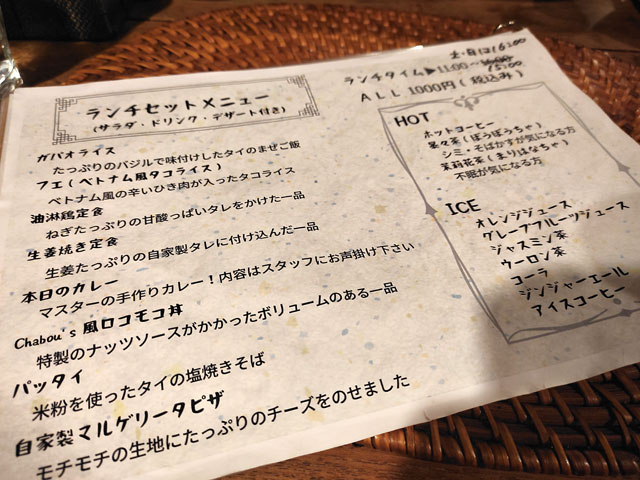 ランチセットメニュー
(サラダ・ドリンク・デザート付き)
ガパオライス
たっぷりのバジルで味付けしたタイのまぜご飯
フエ(ベトナム風タコライス)
ベトナム風の辛いひき肉が入ったタコライス
油淋鶏定食
ねぎたっぷりの甘酸っぱいタレをかけた一品
生姜焼き定食
生姜たっぷりの自家製タレに付け込んだ一品
本日のカレー
マスターの手作りカレー!内容はスタッフにお声掛け下さい
Chabou's 風ロコモコ丼
特製のナッツソースがかかったボリュームのある一品
パッタイ
米粉を使ったタイの塩焼きそば
自家製マルゲリータピザ
モチモチの生地にたっぷりのチーズをのせました
土・日は16:00
ランチタイム▶11:00~
15:00
ALL 1000円(税込み)
HOT
ホットコーヒー
茶(ぼうぼうちゃ)
シミ・そばかすが気になる方
茉莉花茶(まりはなちゃ)
不眠が気になる方
ICE
オレンジジュース
グレープフルーツジュース
ジャスミン茶
ウーロン茶
コーラ
ジンジャーエール
アイスコーヒー